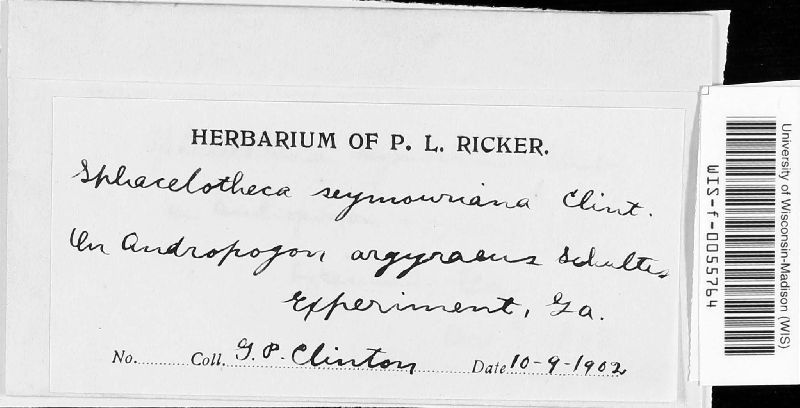 HERBARIUM OF P. L. RICKER.
Sphacelotheca seymouriana Clint.
On Andropogon argyraeus Schultes
Experiment, Ga.
No. Coll. G. P. Clinton Date 10-9-1902
University of Wisconsin-Madison (WIS)
WIS-f-0055764